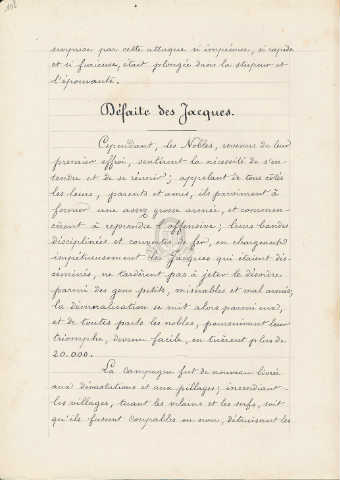 surprise par cette attaque si imprévue, si rapide
et si furieuse, était plongée dans la stupeur et
l'épouvante.
Défaite des Jacques.
Cependant, les Nobles, revenus de leur
premier effroi, sentirent la nécessité de s'en-
tendre et de se réunir; appelant de tous côtés
les leurs, parents et amis, ils parvinrent à
former une assez grosse armée, et commen-
cèrent à reprendre l'offensive; leurs bandes
disciplinées et couvertes de fer, en chargeant
impétueusement les Jacques qui étaient dis-
séminés, ne tardèrent pas à jeter le désordre
parmi des gens petits, misérables et mal armés;
la démoralisation se mit alors parmi eux,
et de toutes parts les nobles, poursuivant leur
triomphe, devenu facile, en tuèrent plus de
20.000.
La campagne fut de nouveau livrée
aux dévastations et aux pillages; incendiant
les villages, tuant les vilains et les serfs, soit
qu'ils fussent coupables ou non, détruisant les